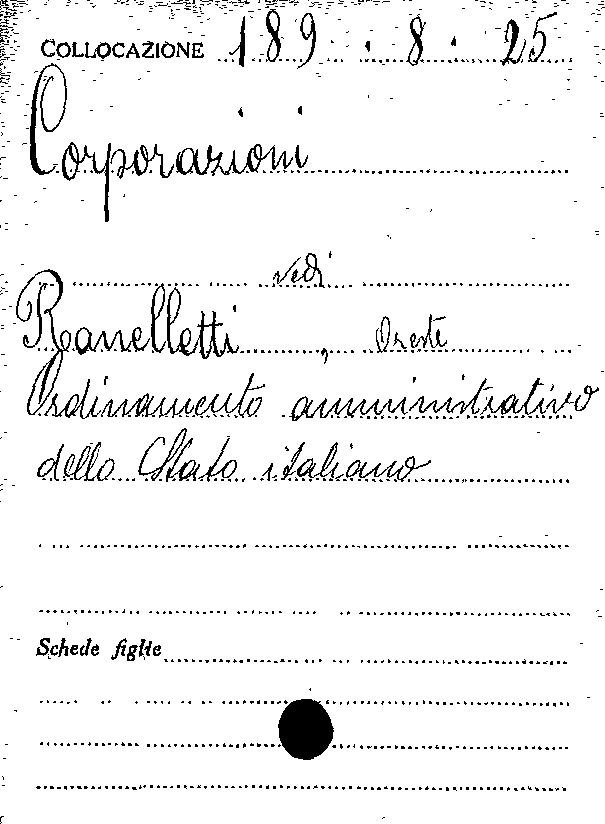 COLLOCAZIONE 189.8.25
Corporazioni
vedi
Ranelletti, Oreste
Ordinamento amministrativo
dello Stato italiano
Schede figlie